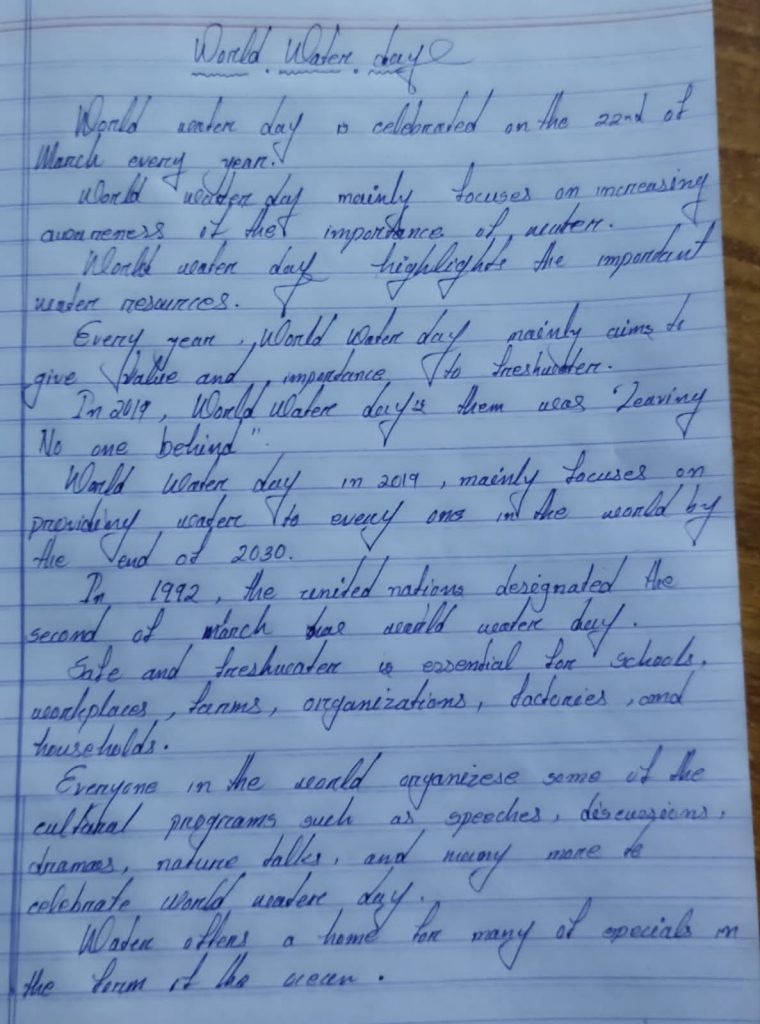 World Water day
World water day is celebrated on the 22nd of
March every year.
World water day mainly focuses on increasing
awareness of the importance of water.
World water day highlights the important
water resources.
Every year, World Water day mainly aims to
give value and importance to freshwater.
In 2019, World Water day's them was "Leaving
No one behind".
World Water day in 2019, mainly focuses on
providing water to every one in the world by
the end of 2030.
In 1992, the united nations designated the
second of march as world water day.
Safe and freshwater is essential for schools,
workplaces, farms, organizations, factories, and
households.
Everyone in the world organizese some of the
cultural programs such as speeches, discussions,
dramas, nature talks, and many more to
celebrate world water day.
Water offers a home for many of specials in
the form of the ocean.